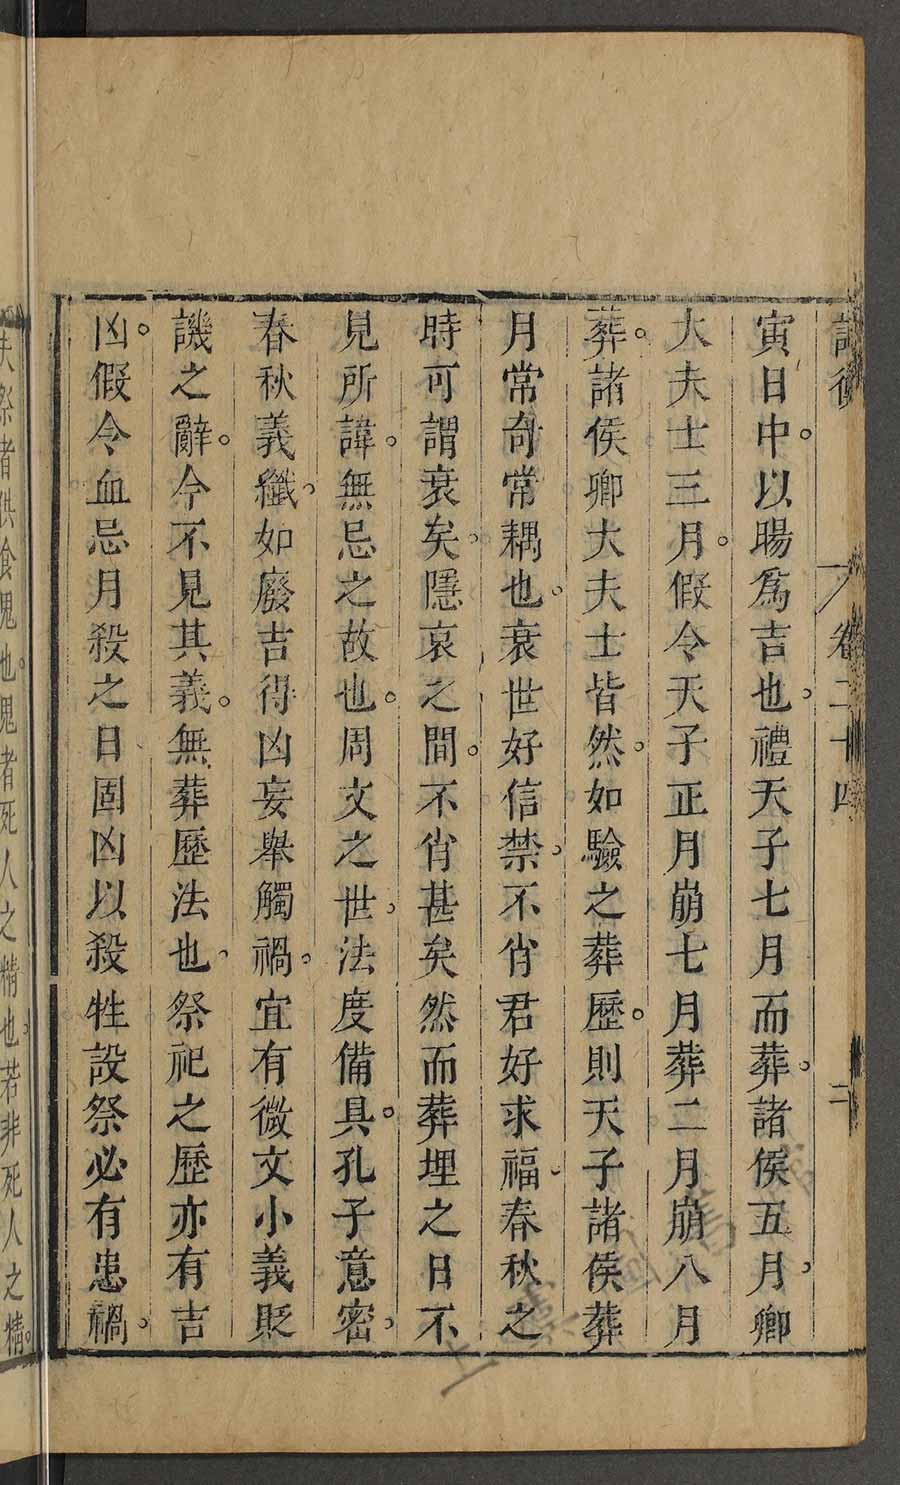 卷二十四
二
寅日中。以暘爲吉也。禮天子七月而葬。諸侯五月。卿
大夫士三月。假令天子正月崩七月葬二月崩八月
葬。諸侯卿大夫士皆然。如驗之葬歷。則天子諸侯葬
月常奇常耦也。衰世好信禁。不肖君好求福。春秋之
時可謂衰矣。隱哀之間。不肖甚矣然而葬埋之日不
見所諱。無忌之故也。周文之世。法度備具。孔子意密。
春秋義纖。如廢吉得凶妄舉觸禍。宜有微文小義貶
譏之辭。今不見其義。無葬歷法也。祭祀之歷亦有吉
凶。假令血忌月殺之日固凶以殺牲設祭必有患禍。
夫祭者供食鬼也。鬼者死人之精也。若非死人之精。